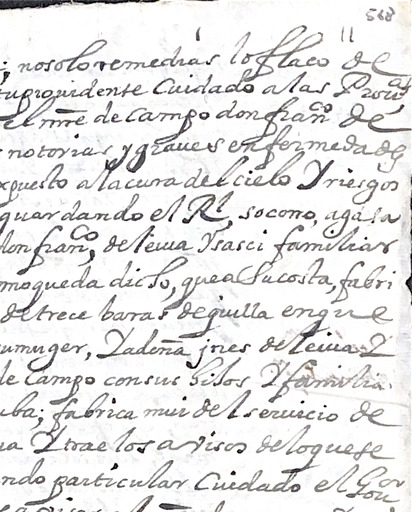 568
; nosolo remediás lo flaco de
tuprouidente Cuidado a las Prouas
el mre de campo don franco de
notorias y graues enfermedades
xpuesto a la cura del cielo Y riesgos
guardando el Rl, socono, aga Sa
don franco, de leiua Ysasci familiar
moqueda dicho, quea Sucosta, fabri
de trece baras de quilla enque
sumuger, Y adeña jnes de leiua Y
de Campo consus hilos Y familia
uba; fabrica mui del seruicio de
na Y trae los a visos de loquese
ndo particular Cuidado el Gouor